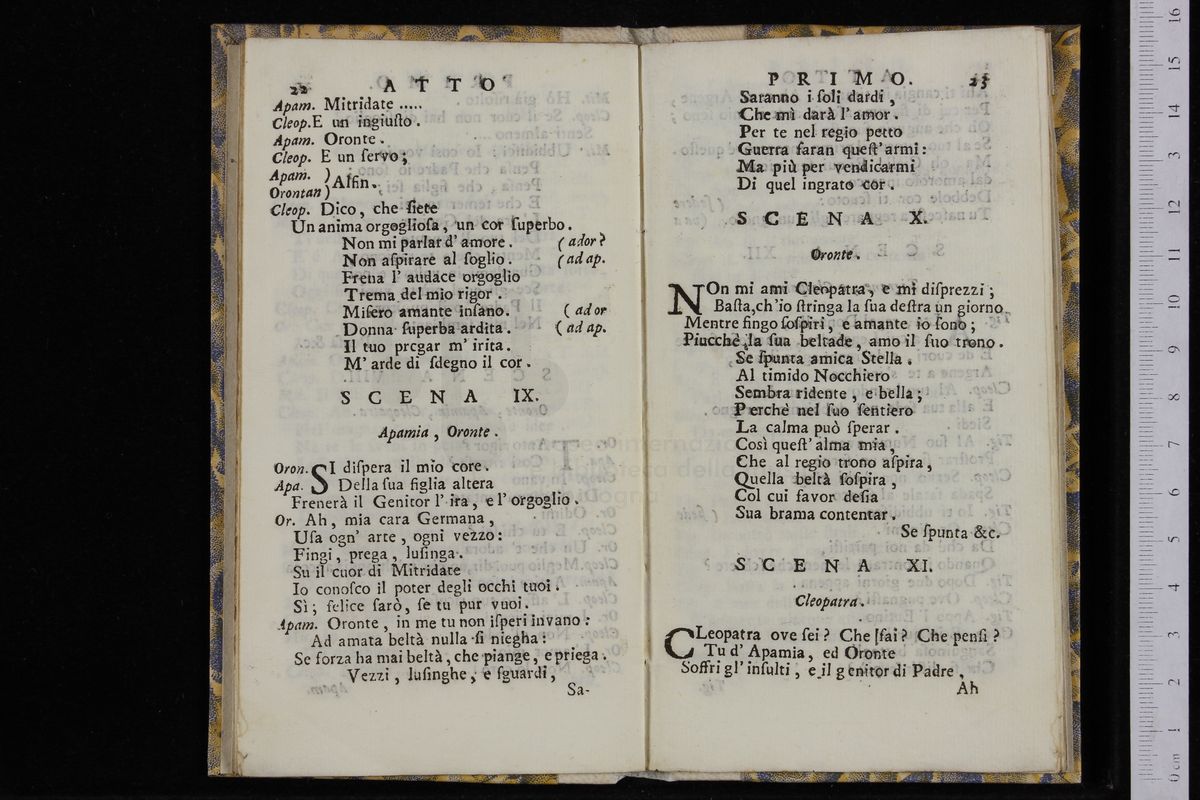 22 ATTO
Apam. Mitridate .....
Cleop. E un ingiuſto.
Apam. Oronte.
Cleop. E un ſervo;
Apam. )
Orontan ) Alfin.
Cleop. Dico, che ſiete
Un anima orgoglioſa, un cor ſuperbo.
Non mi parlar d' amore. (ador?
Non aſpirare al ſoglio. (ad ap.
Frena l' audace orgoglio
Trema del mio rigor.
Miſero amante inſano. (ad or
Donna ſuperba ardita. (ad ap.
Il tuo pregar m' irita.
M' arde di ſdegno il cor.
SCENA IX.
Apamia, Oronte.
Oron. SI diſpera il mio core.
Apa. Della ſua figlia altera
Frenerà il Genitor l' ira, e l' orgoglio.
Or. Ah, mia cara Germana,
Uſa ogn' arte, ogni vezzo:
Fingi, prega, luſinga.
Su il cuor di Mitridate
Io conoſco il poter degli occhi tuoi.
Sì; felice ſarò, ſe tu pur vuoi.
Apam. Oronte, in me tu non iſperi invano:
Ad amata beltà nulla ſi niegha:
Se forza ha mai beltà, che piange, e priega.
Vezzi, luſinghe, e ſguardi,
Sa-
PRIMO. 23
Saranno i ſoli dardi,
Che mì darà l' amor.
Per te nel regio petto
Guerra faran queſt' armi:
Ma più per vendicarmi
Di quel ingrato cor.
SCENA X.
Oronte.
NOn mi ami Cleopatra, e mi diſprezzi;
Baſta, ch'io ſtringa la ſua deſtra un giorno
Mentre fingo ſoſpiri, e amante io ſono;
Piucchè la ſua beltade, amo il ſuo trono.
Se ſpunta amica Stella.
Al timido Nocchiero
Sembra ridente, e bella;
Perchè nel ſuo ſentiero
La calma può ſperar.
Così queſt' alma mia,
Che al regio trono aſpira,
Quella beltà ſoſpira,
Col cui favor deſia
Sua brama contentar.
Se ſpunta &c.
SCENA XI.
Cleopatra.
CLeopatra ove ſei? Che ſſai? Che penſi?
Tu d' Apamia, ed Oronte
Soffri gl' inſulti, e il genitor di Padre,
Ah